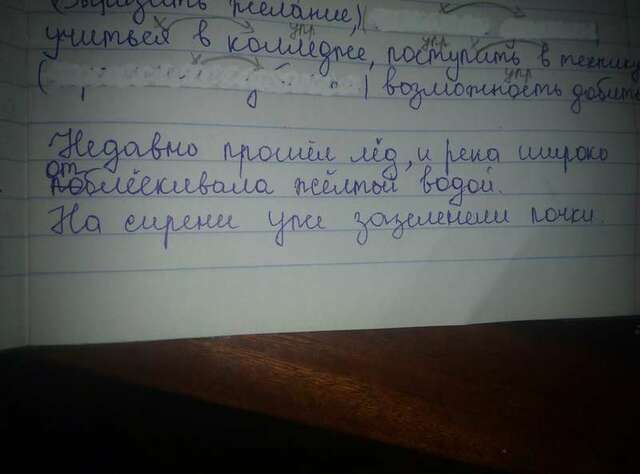 (выразить желание,) (
упр
учиться в колледже, поступить в технику
упр
упр
( ) возможность добить
Недавно прошёл лёд, и река широко
от
поблёскивала жёлтой водой.
На сирени уже зазеленели почки.